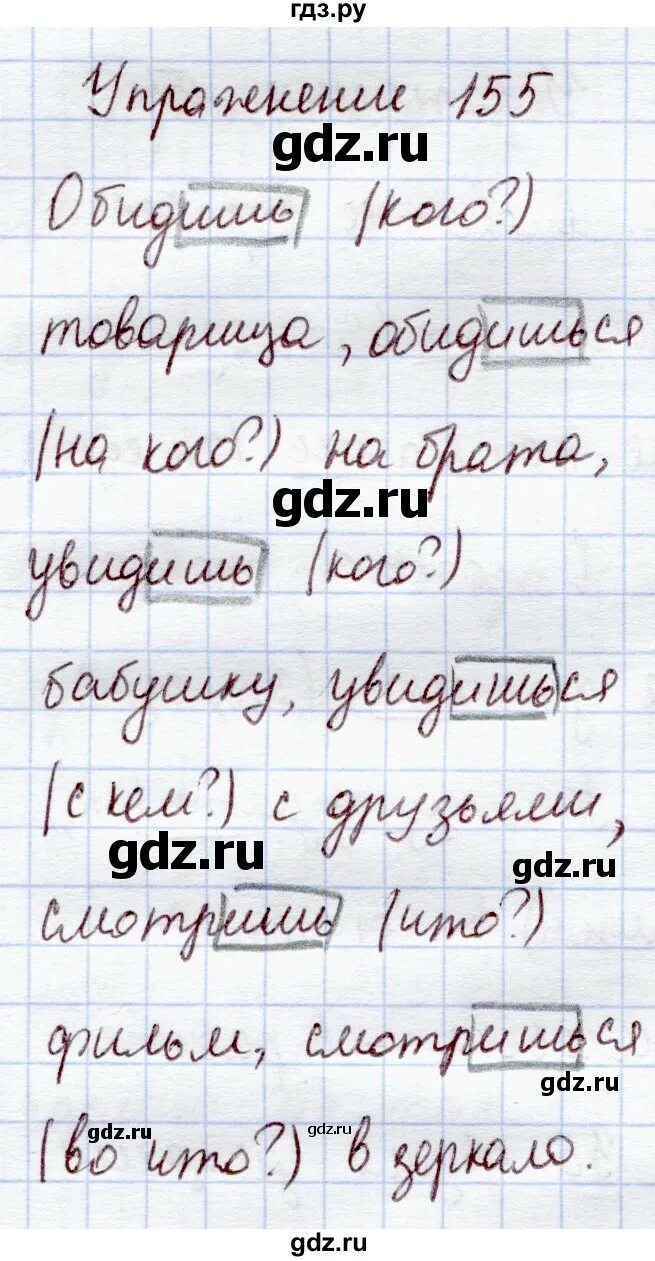 гдз.ру
Упражнение 155
gdz.ru
Обидишь (кого?)
товарища, обидишься
(на кого?) на брата,
gdz.ru
увидишь (кого?)
бабушку, увидишься
(с кем?) с друзьями,
gdz.ru
gdz.ru
смотришь (что?)
фильм, смотришься
gdz.ru
(во что?) в зеркало.
gdz.ru
gdz.ru
gdz.ru